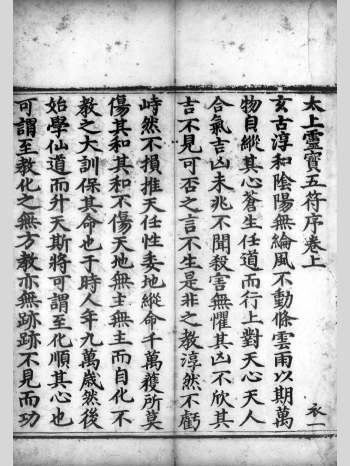 太上靈寳五符序卷上
玄古淳和陰陽無綸風不動條雲雨以期萬
物自縱其心蒼生任道而行上對天心天人
合氣吉凶未兆不聞殺害無懼其凶不欣其
吉不見可否之言不生是非之教淳然不虧
峙然不損推天任性委地縱命千萬穫所莫
傷其和其和不傷天地無主無主而自化不
教之大訓保其命也于時人年九萬歲然後
始學仙道而升天斯將可謂至化順其心也
可謂至教化之無方教亦無跡跡不見而功
衣一